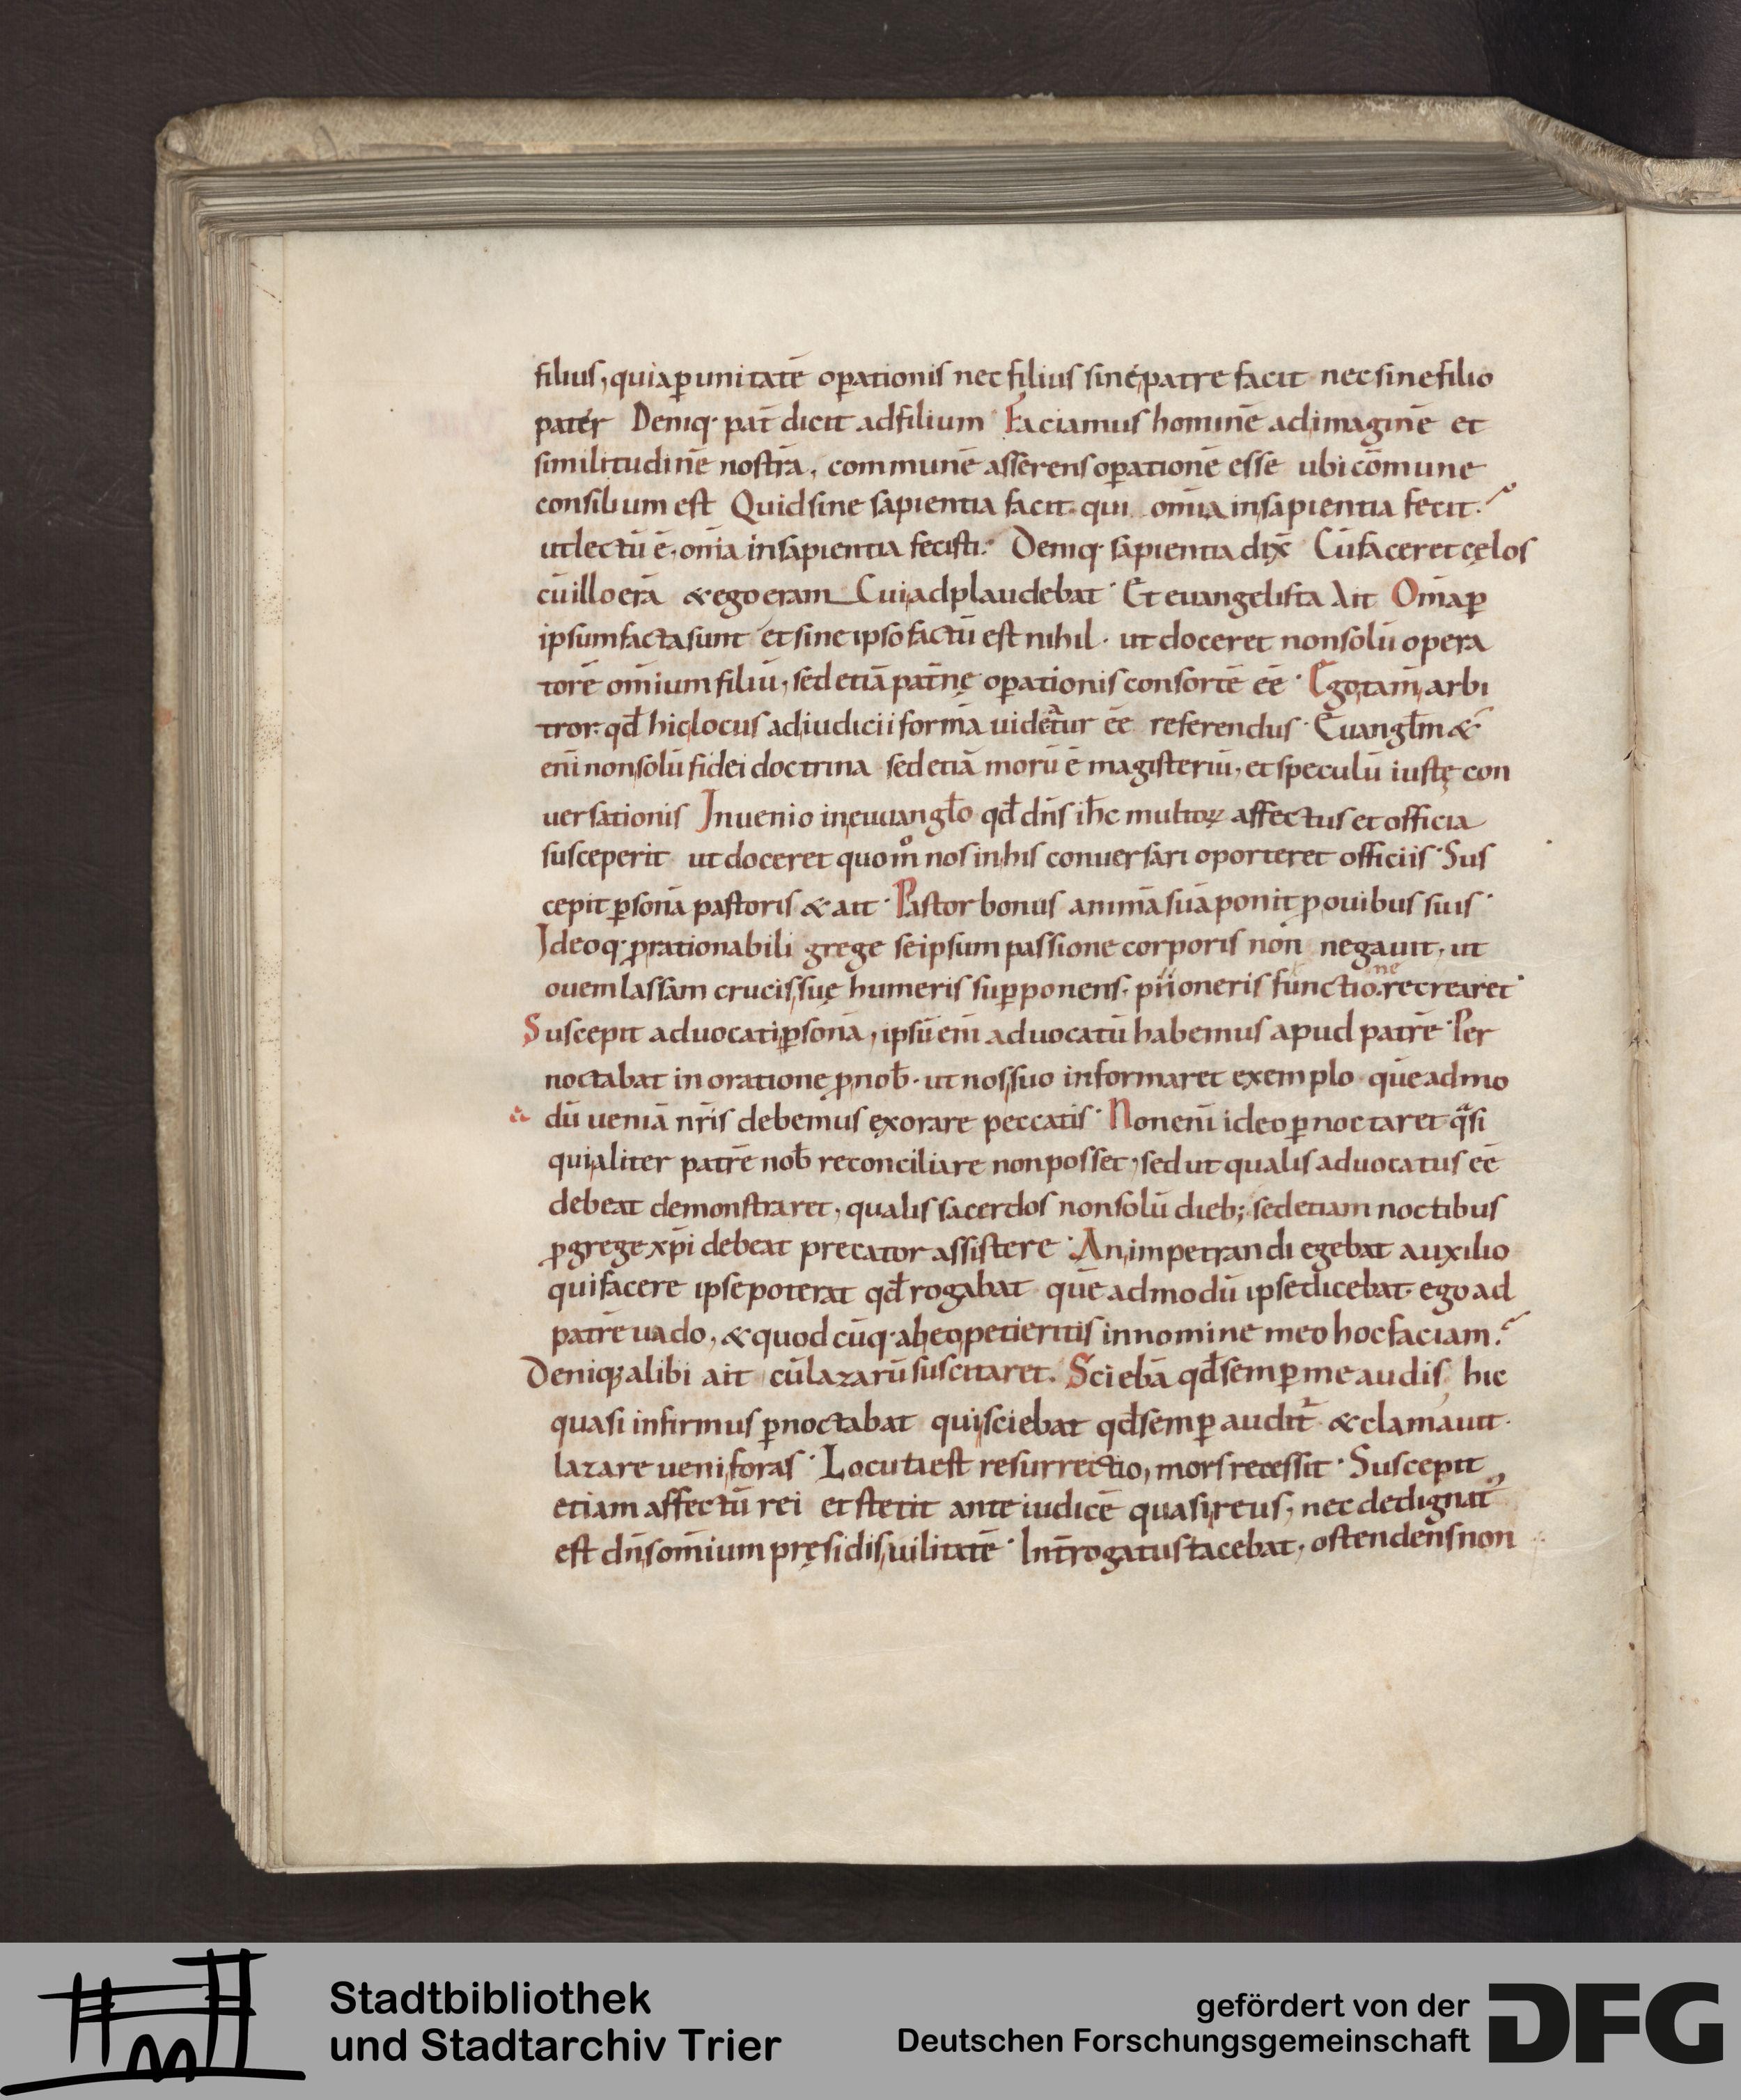 filius, quia ꝑ unitatē oꝑationis nec filius sine patre facit nec sine filio
pater Deniq· pat̄ dicit ad filium Faciamus hominē ad imaginē et
similitudinē nostrā, communē asserens oꝑationē esse ubi cōmune
consilium est Quid sine sapientia facit qui om̄ia in sapientia fecit·
ut lectū ē· om̄ia in sapientia fecisti· Deniq· sapientia dix̄ Cū faceret cęlos
cū illo erā & ego eram Cui adplaudebat· Et euangelista Ait Om̄ia ꝑ
ipsum facta sunt et sine ipso factū est nihil· ut doceret non solū opera
torē om̄ium filiū, sed etiā pat̄nę oꝑationis consortē ēē· Ego tam̄ arbi
tror· qđ hic locus ad iudicii formā uidetur ēē referendus· Euangłm &
eni̅ non solū fidei doctrina sed etiā morū ē magisteriū, et speculū iustę con
uersationis Inuenio in euuangło qđ dn̄s ih̄c multoꝝ affectus et officia
susceperit ut doceret quom̊ nos in his conuersari oporteret officiis· Sus
cepit ꝑsonā pastoris & ait· Pastor bonus animā suā ponit ꝓ ouibus suis·
Ideoq· ꝓ rationabili grege se ipsum passione corporis non negauit, ut
ouem lassam crucis suę humeris suꝑponens· pii oneris functione recrearet·
Suscepit aduocati ꝑsonā, ipsū eni̅ aduocatū habemus apud patrē· Per
noctabat in oratione ꝓ nob̄· ut nos suo informaret exemplo quēadmo
dū ueniā nr̄is debemus exorare peccatis· Non eni̅ ideo ꝑnoctaret qᵃsi
qui aliter patrē nob̄ reconciliare non posset, sed ut qualis aduocatus ēē
debeat demonstraret, qualis sacerdos non solū dieb; sed etiam noctibus
ꝓ grege xp̄i debeat precator assistere· An impetrandi egebat auxilio
qui facere ipse poterat qđ rogabat quēadmodū ipse dicebat· ego ad
patrē uado, & quodcūq· ab eo petieritis in nomine meo hoc faciam·
Deniq; alibi ait cū lazarū suscitaret· Sciebā qđ semꝑ me audis hic
quasi infirmus ꝑnoctabat qui sciebat qđ semꝑ audit̄ & clamauit·
lazare ueni foras· Locuta est resurrectio, mors recessit· Suscepit
etiam affectū rei et stetit ante iudicē quasi reus, nec dedignat᾽
est dn̄s om̄ium pręsidis uilitatē· Int̄rogatus tacebat, ostendens non
Stadtbibliothek
und Stadtarchiv Trier
gefördert von der
Deutschen Forschungsgemeinschaft
DFG